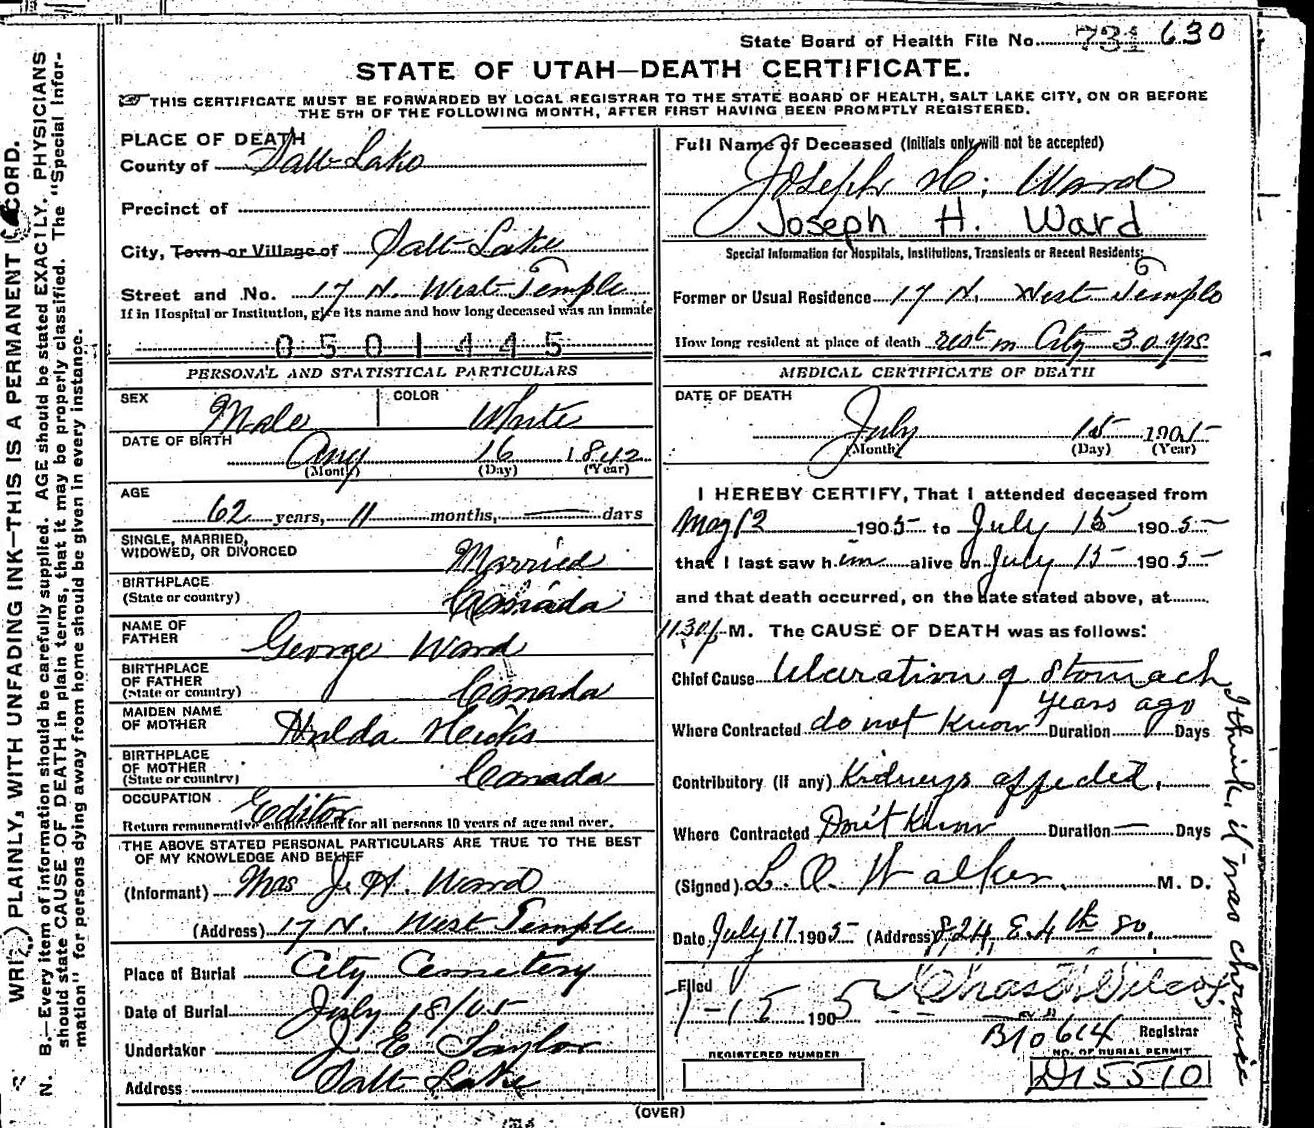 State Board of Health File No. 731 630
STATE OF UTAH—DEATH CERTIFICATE.
THIS CERTIFICATE MUST BE FORWARDED BY LOCAL REGISTRAR TO THE STATE BOARD OF HEALTH, SALT LAKE CITY, ON OR BEFORE
THE 5TH OF THE FOLLOWING MONTH, AFTER FIRST HAVING BEEN PROMPTLY REGISTERED.
PLACE OF DEATH
County of Salt Lake
Precinct of
City, Town or Village of Salt Lake
Street and No. 17 N. West Temple
If in Hospital or Institution, give its name and how long deceased was an inmate
0501445
PERSONAL AND STATISTICAL PARTICULARS
SEX Male COLOR White
DATE OF BIRTH
Aug 16 1842
(Month) (Day) (Year)
AGE
62 years, 11 months, — days
SINGLE, MARRIED,
WIDOWED, OR DIVORCED Married
BIRTHPLACE
(State or country) Canada
NAME OF
FATHER George Ward
BIRTHPLACE
OF FATHER
(State or country) Canada
MAIDEN NAME
OF MOTHER Hulda Hicks
BIRTHPLACE
OF MOTHER
(State or country) Canada
OCCUPATION Editor
Return remunerative employment for all persons 10 years of age and over.
THE ABOVE STATED PERSONAL PARTICULARS ARE TRUE TO THE BEST
OF MY KNOWLEDGE AND BELIEF
(Informant) Mrs J. H. Ward
(Address) 17 N. West Temple
Place of Burial City Cemetery
Date of Burial July 18/05
Undertaker J E Taylor
Address Salt Lake
Full Name of Deceased (Initials only will not be accepted)
Joseph H. Ward
Joseph H. Ward
Special Information for Hospitals, Institutions, Transients or Recent Residents:
Former or Usual Residence 17 N. West Temple
How long resident at place of death rest in City 30 yrs
MEDICAL CERTIFICATE OF DEATH
DATE OF DEATH
July 15 1905
(Month) (Day) (Year)
I HEREBY CERTIFY, That I attended deceased from
May 12 1905 to July 15 1905
that I last saw him alive on July 15 1905
and that death occurred, on the date stated above, at
11.30 P M. The CAUSE OF DEATH was as follows:
Chief Cause Ulceration of Stomach
years ago
Where Contracted do not know Duration Days
Contributory (if any) Kidneys affected.
Where Contracted Don't Know Duration — Days
(Signed) L. A. Walker M. D.
Date July 17 1905 (Address) 824, E. 4th So.
Filed
1905 Chas Wilcox
B10614 Registrar
REGISTERED NUMBER NO. OF BURIAL PERMIT
D15510
(OVER)
I think it was chronic
WRITE PLAINLY, WITH UNFADING INK—THIS IS A PERMANENT RECORD.
N. B.—Every item of information should be carefully supplied. AGE should be stated EXACTLY. PHYSICIANS
should state CAUSE OF DEATH in plain terms, that it may be properly classified. The "Special Infor-
mation" for persons dying away from home should be given in every instance.